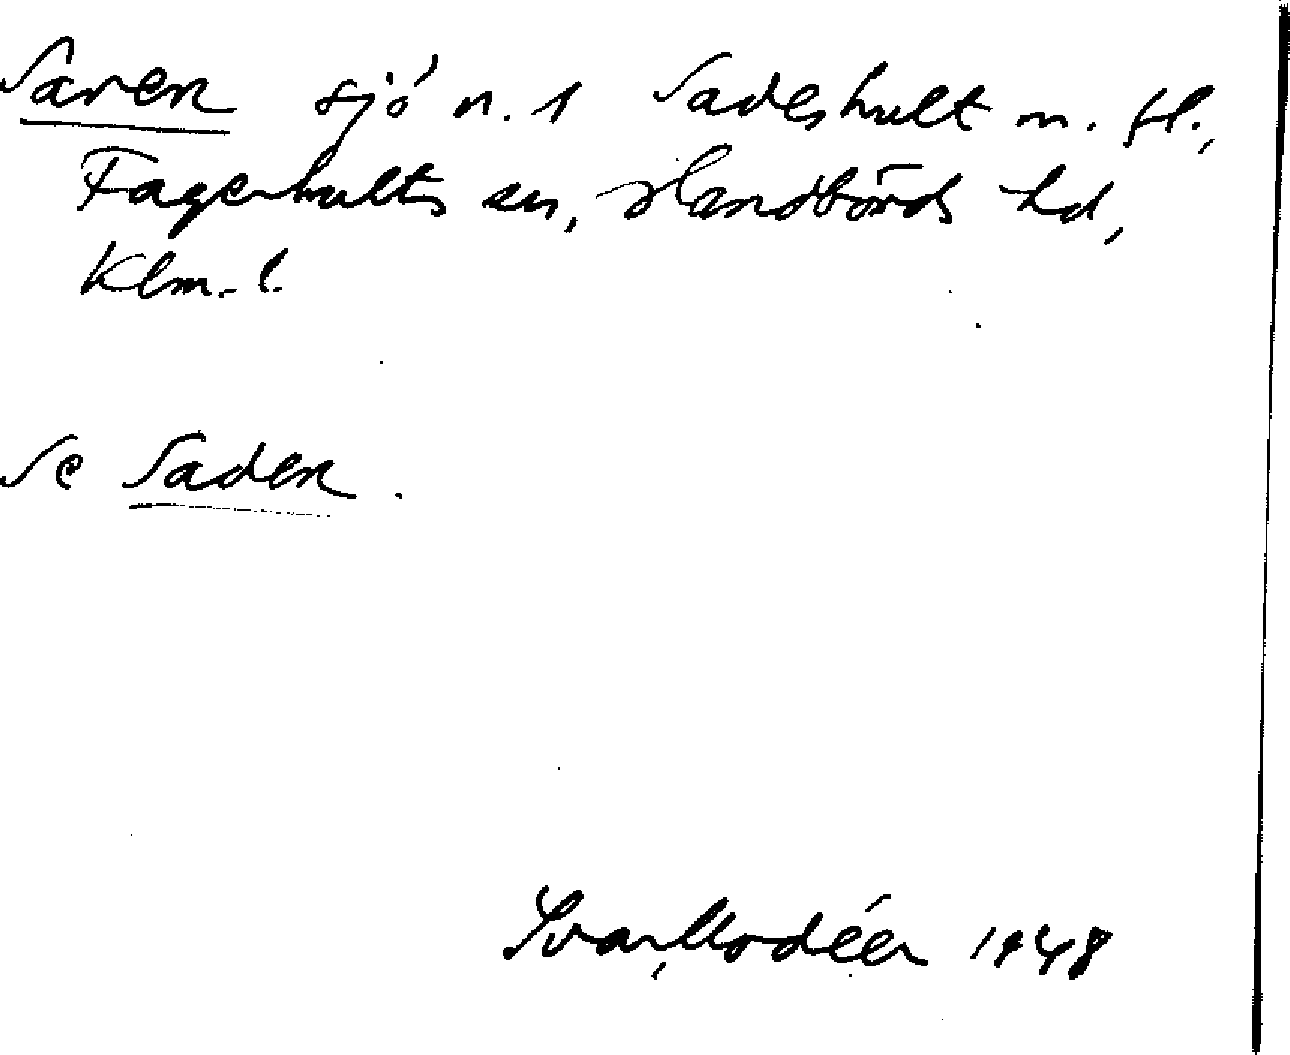 Saren sjö n. 1 Sadeshult m. fl.,
Fagerhults sn, Handbörds hd,
Klm. l.
Se Saden.
Ivar Modéer 1948